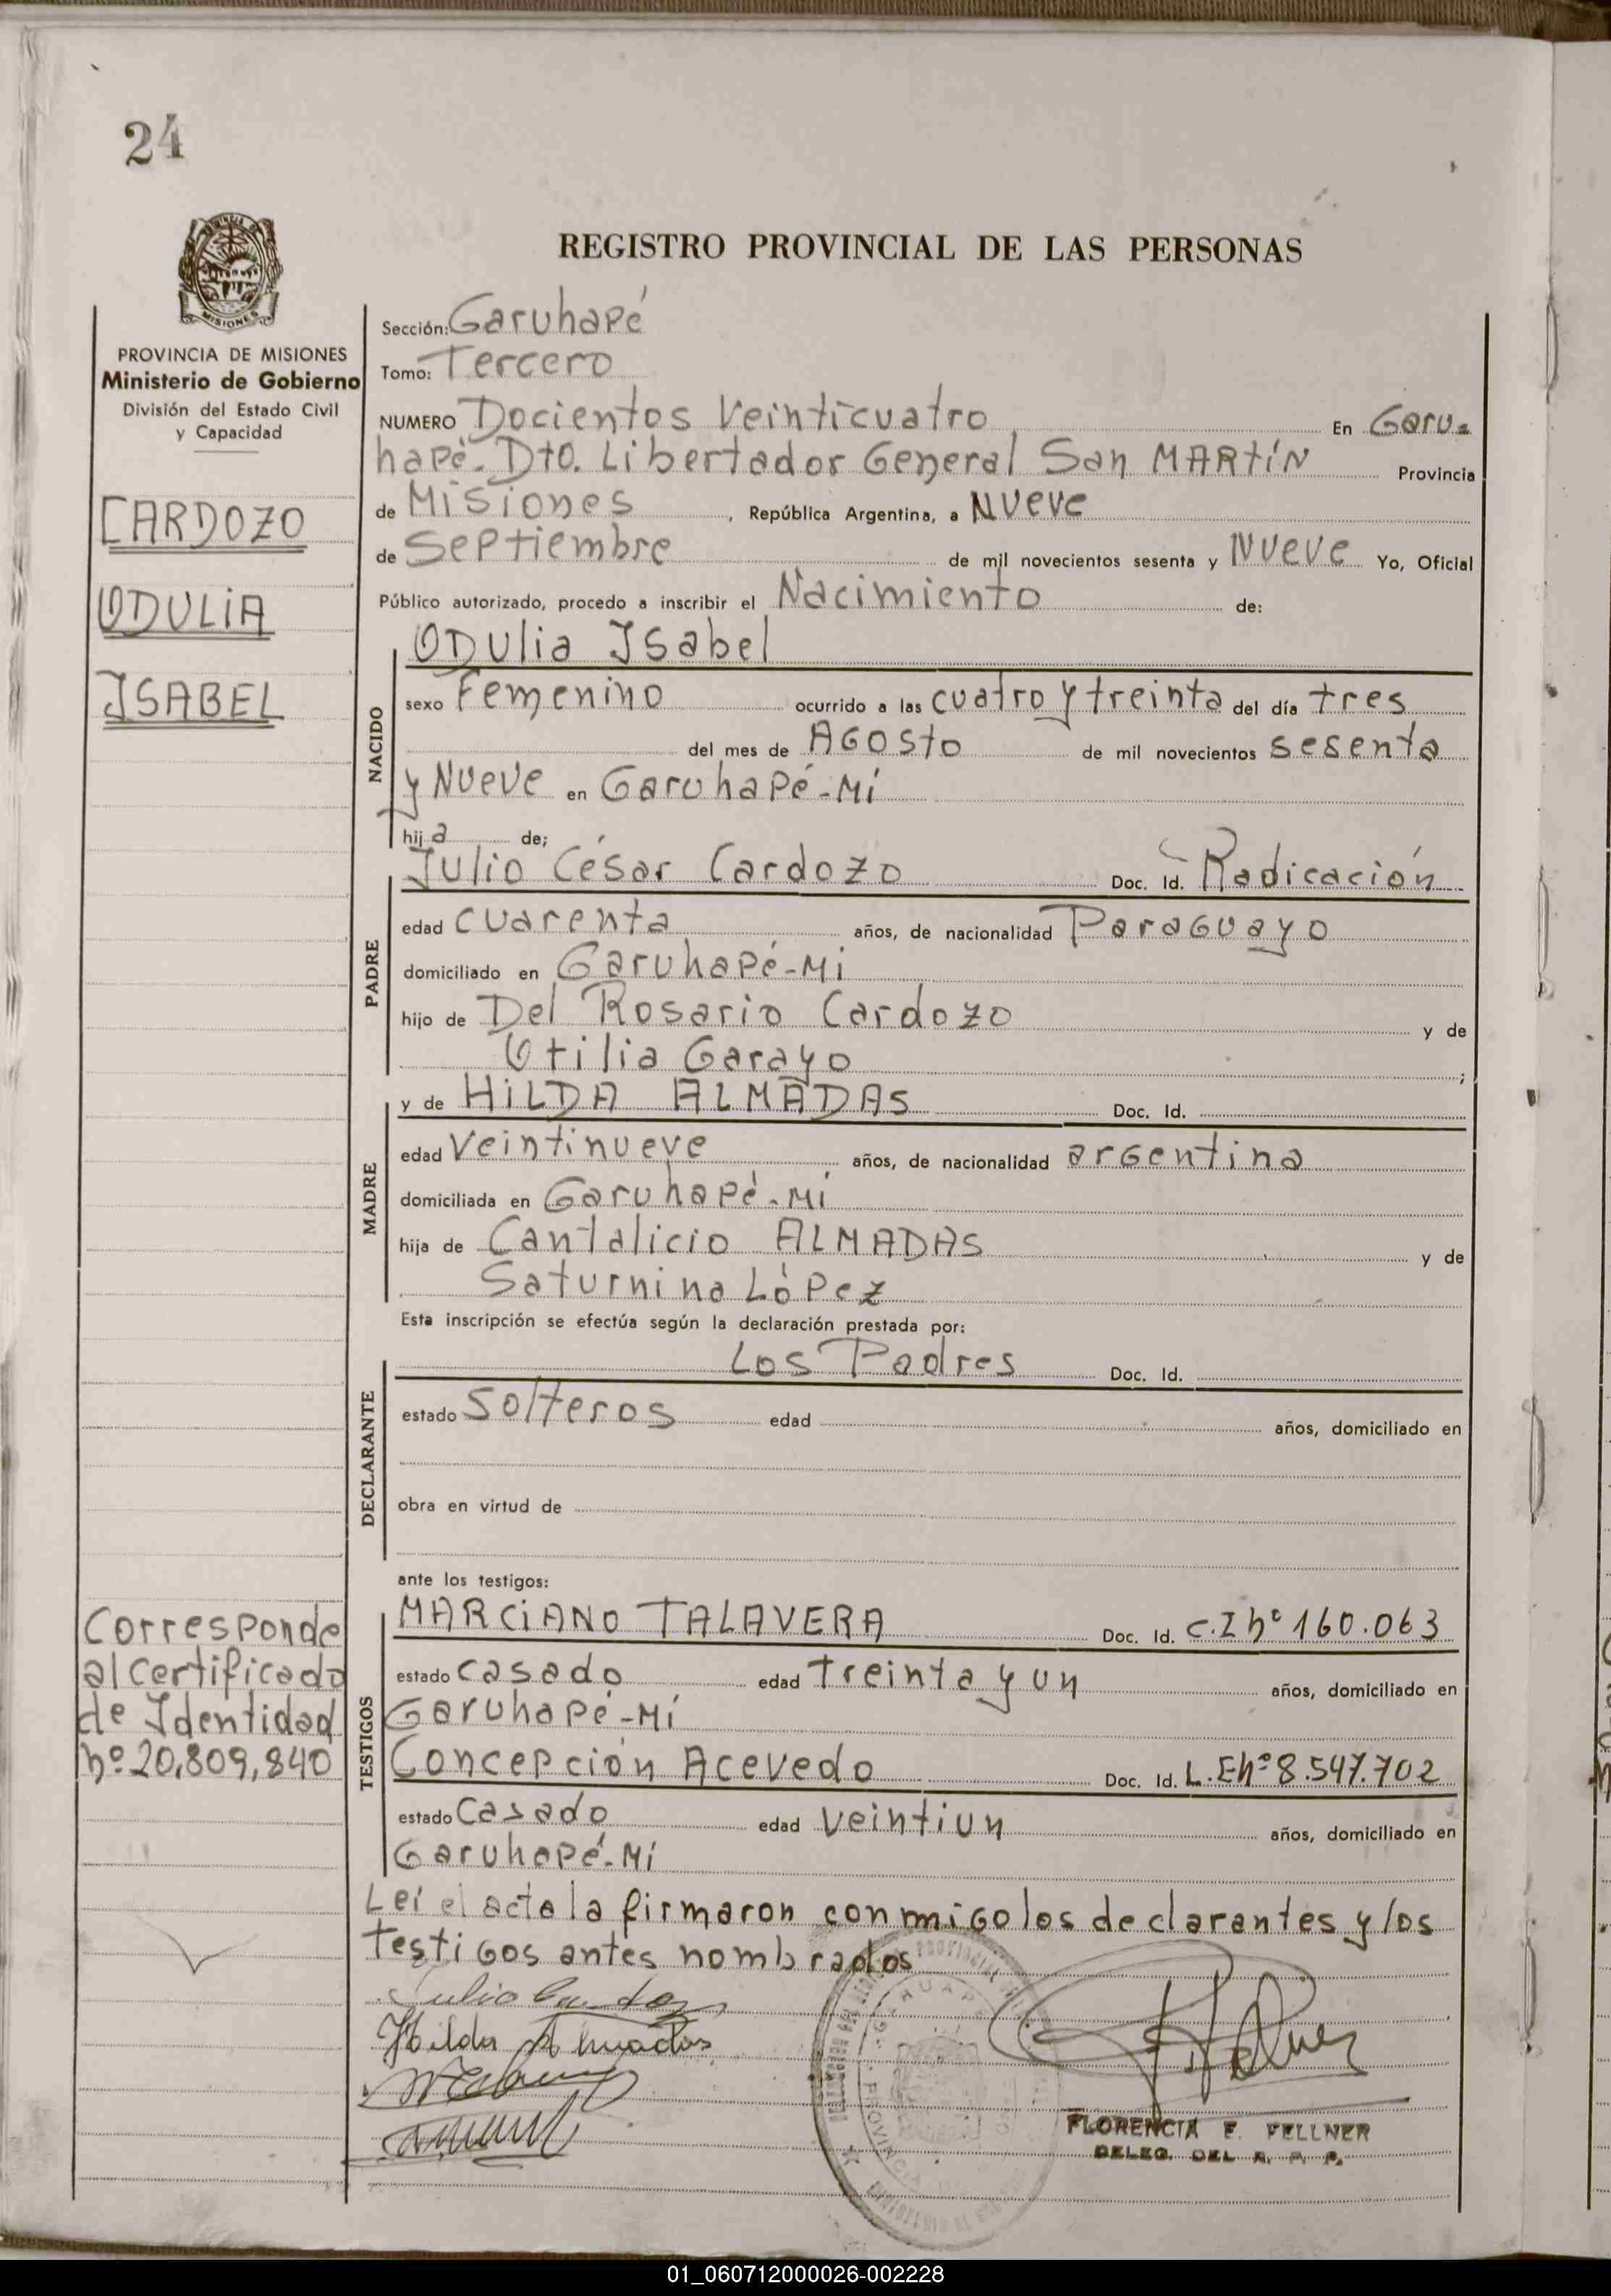 24
REGISTRO PROVINCIAL DE LAS PERSONAS
MISIONES
PROVINCIA DE MISIONES
Ministerio de Gobierno
División del Estado Civil
y Capacidad
CARDOZO
ODULiA
ISABEL
Sección: Garuhapé
Tomo: Tercero
NUMERO Docientos Veinticuatro En Garu=
hapé. Dto. Libertador General San MARtíN Provincia
de Misiones, República Argentina, a Nueve
de Septiembre de mil novecientos sesenta y Nueve Yo, Oficial
Público autorizado, procedo a inscribir el Nacimiento de:
NACIDO
ODulia Isabel
sexo Femenino ocurrido a las cuatro y treinta del día tres
del mes de AGosto de mil novecientos sesenta
y Nueve en Garuhapé-Mí
hija de;
PADRE
Julio César Cardozo Doc. Id. Radicación
edad cuarenta años, de nacionalidad Paraguayo
domiciliado en Garuhapé-Mi
hijo de Del Rosario Cardozo y de
Otilia Garayo;
MADRE
y de HiLDA ALMADAS Doc. Id.
edad Veintinueve años, de nacionalidad argentina
domiciliada en Garuhapé-Mí
hija de Cantalicio ALMADAS y de
Saturnina López
Esta inscripción se efectúa según la declaración prestada por:
DECLARANTE
Los Padres Doc. Id.
estado Solteros edad años, domiciliado en
obra en virtud de
ante los testigos:
TESTIGOS
MARCiANO TALAVERA Doc. Id. C.I nº 160.063
estado casado edad treinta y un años, domiciliado en
Garuhapé-Mí
Concepción Acevedo Doc. Id. L.E nº 8.547.702
estado Casado edad veintiun años, domiciliado en
Garuhapé-Mí
Corresponde
al certificado
de Identidad
nº 20,809,840
Leí el acta la firmaron conmigo los declarantes y los
testigos antes nombrados
Julio Cardozo
Hilda Almadas
FLORENCIA E. FELLNER
DELEG. DEL R. P. P.
01_060712000026-002228